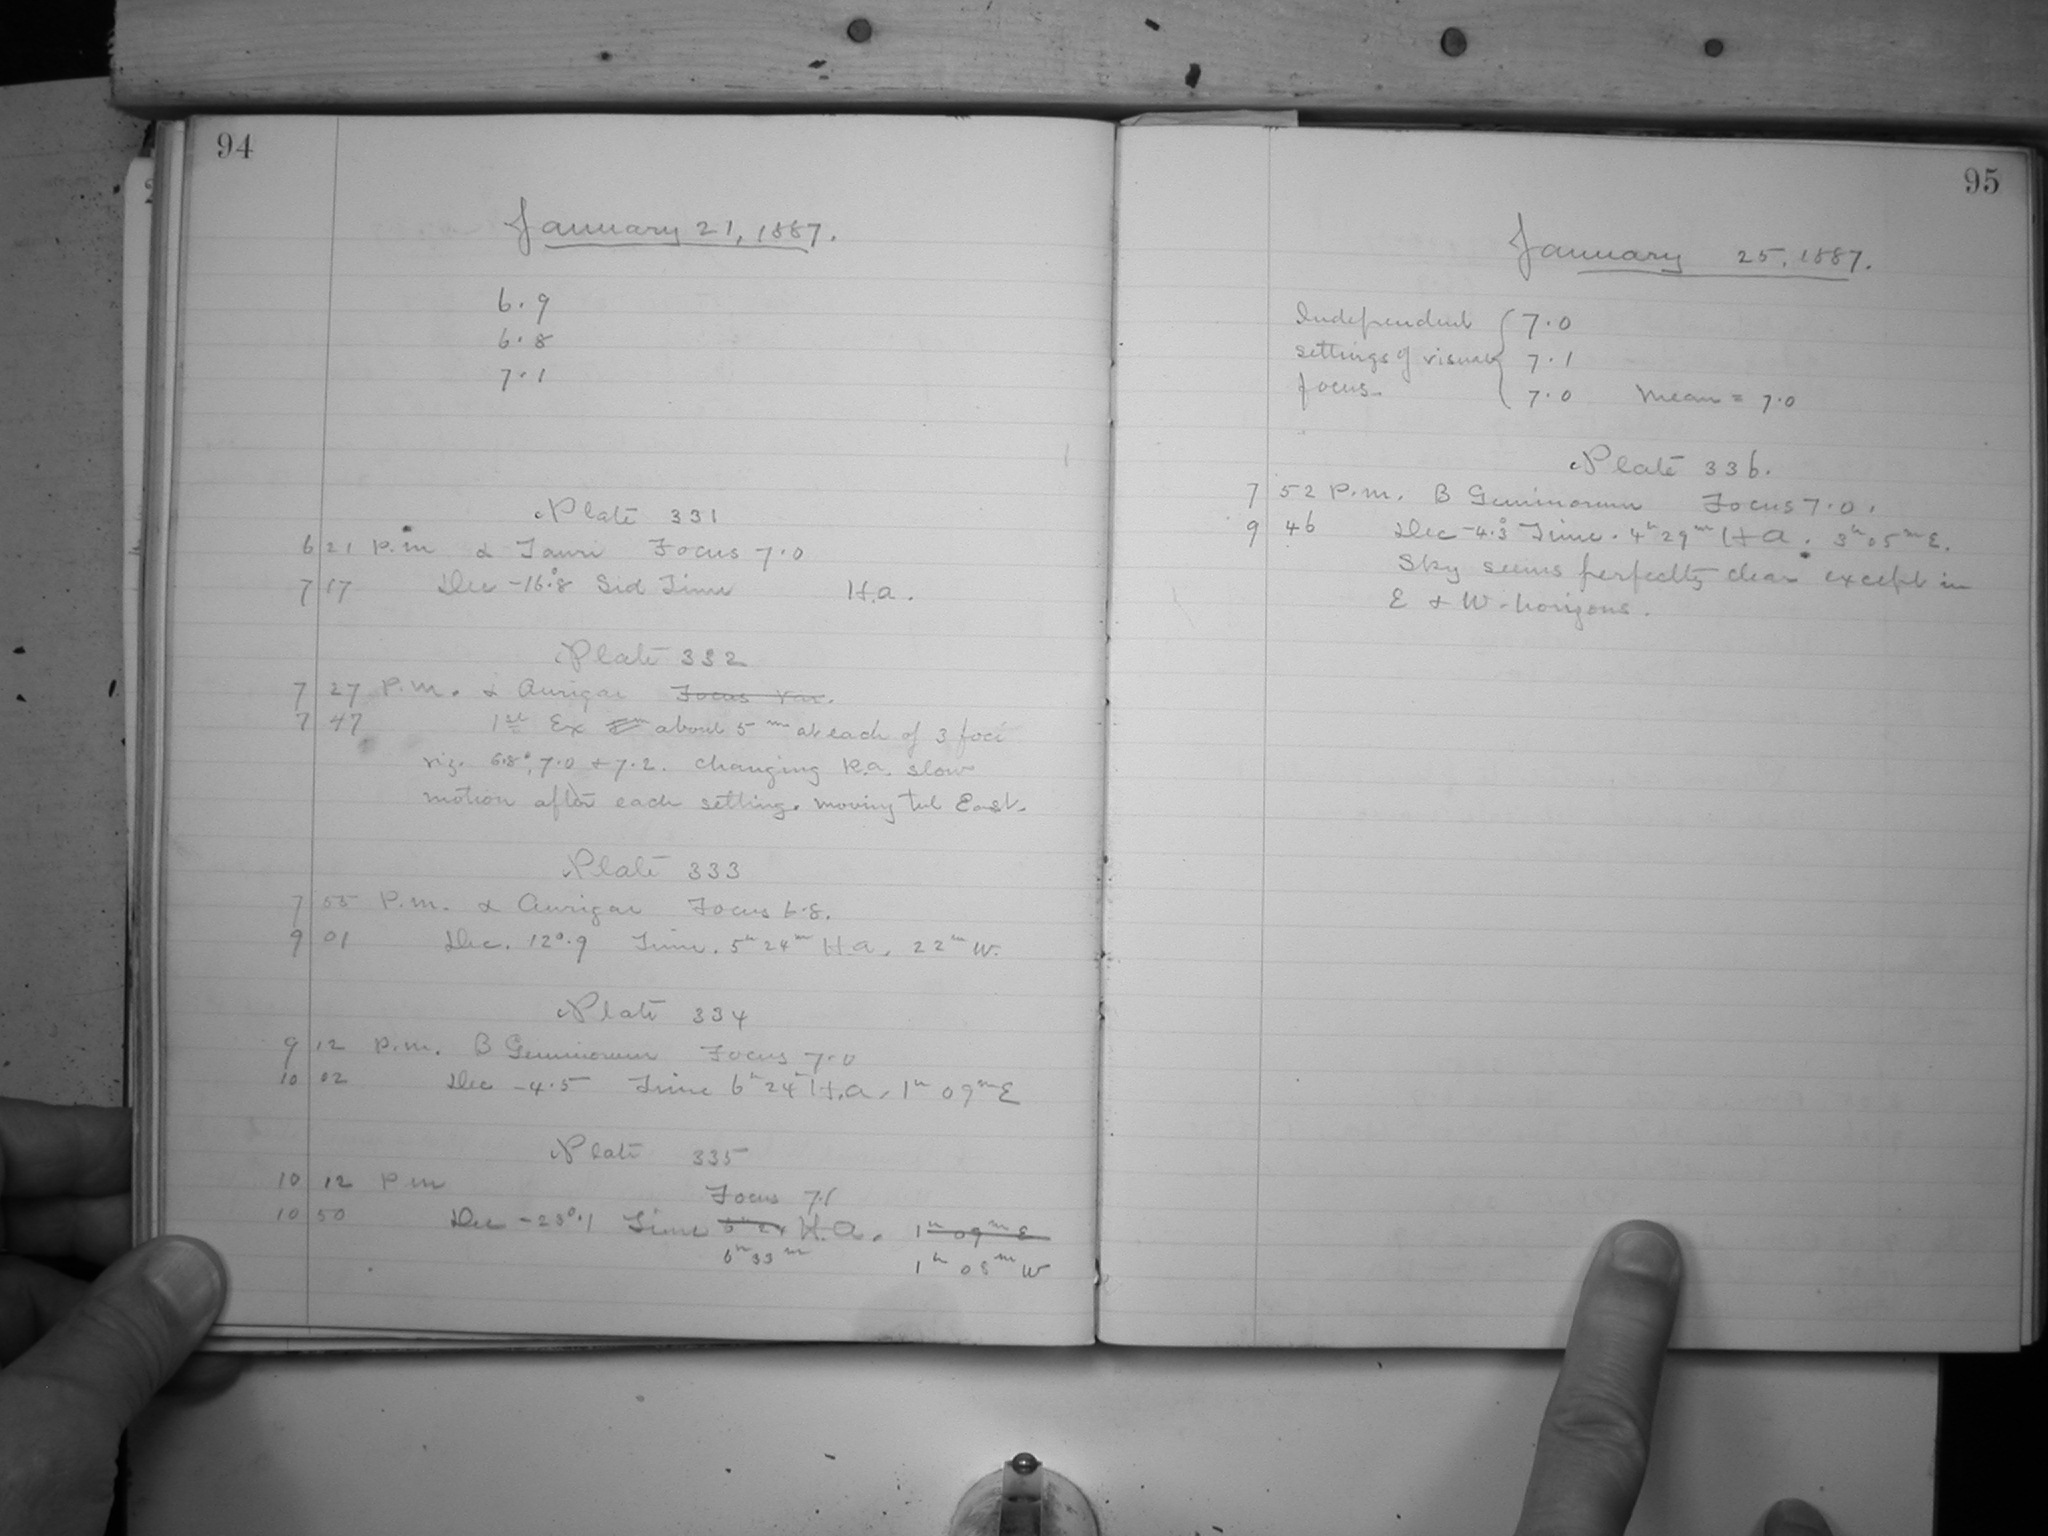 94
January 21, 1887.
6.9
6.8
7.1
Plate 331
6 21 P.m α Tauri Focus 7.0
7 17 Dec -16°.8 Sid Time H.a.
Plate 332
7 27 P.m. α Aurigae Focus Var.
7 47 1st Ex about 5 m at each of 3 foci
viz. 6.8, 7.0 + 7.2. changing R.a. slow
motion after each setting. moving tel East.
Plate 333
7 55 P.m. α Aurigae Focus 6.8.
9 01 Dec. 12°.9 Time. 5h 24m H.a. 22m W.
Plate 334
9 12 P.m. B Geminorum Focus 7.0
10 02 Dec -4.5 Time 6h 24m H.a. 1h 09m E
Plate 335
10 12 P m Focus 7.1
10 50 Dec -28°.1 Time 6h 24 H.a. 1h 09m E
6h 33m 1h 08m W
95
January 25, 1887.
Independent 7.0
settings of visual 7.1
focus. 7.0 Mean = 7.0
Plate 336.
7 52 P.m. B Geminorum Focus 7.0.
9 46 Dec -4°.3 Time. 4h 29m H a. 3h 05m E.
Sky seems perfectly clear except in
E + W - horizons.